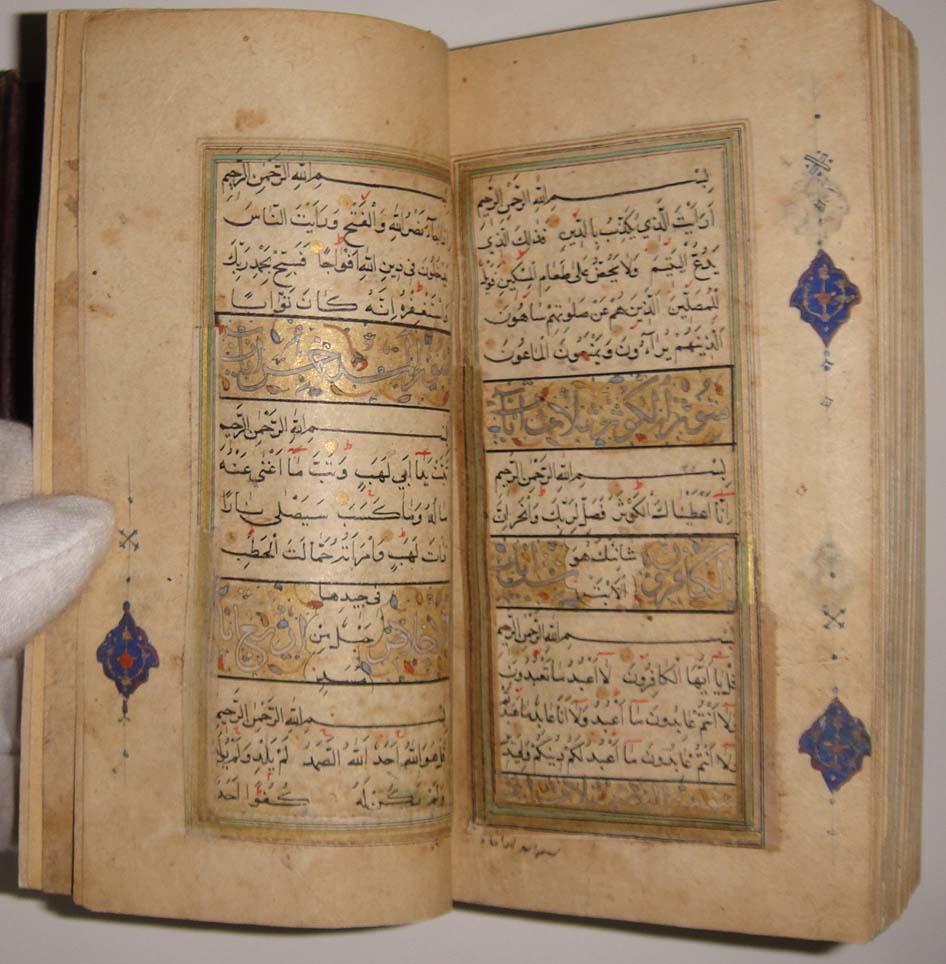 بِسْمِ اللهِ الرَّحْمٰنِ الرَّحِيمِ
اَرَاَيْتَ الَّذِي يُكَذِّبُ بِالدِّينِ فَذٰلِكَ الَّذِي
يَدُعُّ الْيَتِيمَ وَلَا يَحُضُّ عَلٰى طَعَامِ الْمِسْكِينِ فَوَيْلٌ
لِلْمُصَلِّينَ الَّذِينَ هُمْ عَنْ صَلٰوتِهِمْ سَاهُونَ
اَلَّذِينَ هُمْ يُرَآءُونَ وَيَمْنَعُونَ الْمَاعُونَ
سورة الكوثر ثلاث آيات
بِسْمِ اللهِ الرَّحْمٰنِ الرَّحِيمِ
اِنَّا اَعْطَيْنَاكَ الْكَوْثَرَ فَصَلِّ لِرَبِّكَ وَانْحَرْ اِنَّ
شَانِئَكَ هُوَ
الْاَبْتَرُ
الكافرون
بِسْمِ اللهِ الرَّحْمٰنِ الرَّحِيمِ
قُلْ يَا اَيُّهَا الْكَافِرُونَ لَا اَعْبُدُ مَا تَعْبُدُونَ
وَلَا اَنْتُمْ عَابِدُونَ مَا اَعْبُدُ وَلَا اَنَا عَابِدٌ مَا عَبَدْتُمْ
وَلَا اَنْتُمْ عَابِدُونَ مَا اَعْبُدُ لَكُمْ دِينُكُمْ وَلِيَ دِينِ
بِسْمِ اللهِ الرَّحْمٰنِ الرَّحِيمِ
اِذَا جَآءَ نَصْرُ اللهِ وَالْفَتْحُ وَرَاَيْتَ النَّاسَ
يَدْخُلُونَ فِي دِينِ اللهِ اَفْوَاجًا فَسَبِّحْ بِحَمْدِ رَبِّكَ
وَاسْتَغْفِرْهُ اِنَّهُ كَانَ تَوَّابًا
خمس آيات
بِسْمِ اللهِ الرَّحْمٰنِ الرَّحِيمِ
تَبَّتْ يَدَآ اَبِي لَهَبٍ وَتَبَّ مَآ اَغْنٰى عَنْهُ
مَالُهُ وَمَا كَسَبَ سَيَصْلٰى نَارًا
ذَاتَ لَهَبٍ وَامْرَاَتُهُ حَمَّالَةَ الْحَطَبِ
فِي جِيدِهَا
حَبْلٌ مِنْ
مَسَدٍ
بِسْمِ اللهِ الرَّحْمٰنِ الرَّحِيمِ
قُلْ هُوَ اللهُ اَحَدٌ اَللهُ الصَّمَدُ لَمْ يَلِدْ وَلَمْ يُولَدْ
وَلَمْ يَكُنْ لَهُ كُفُوًا اَحَدٌ